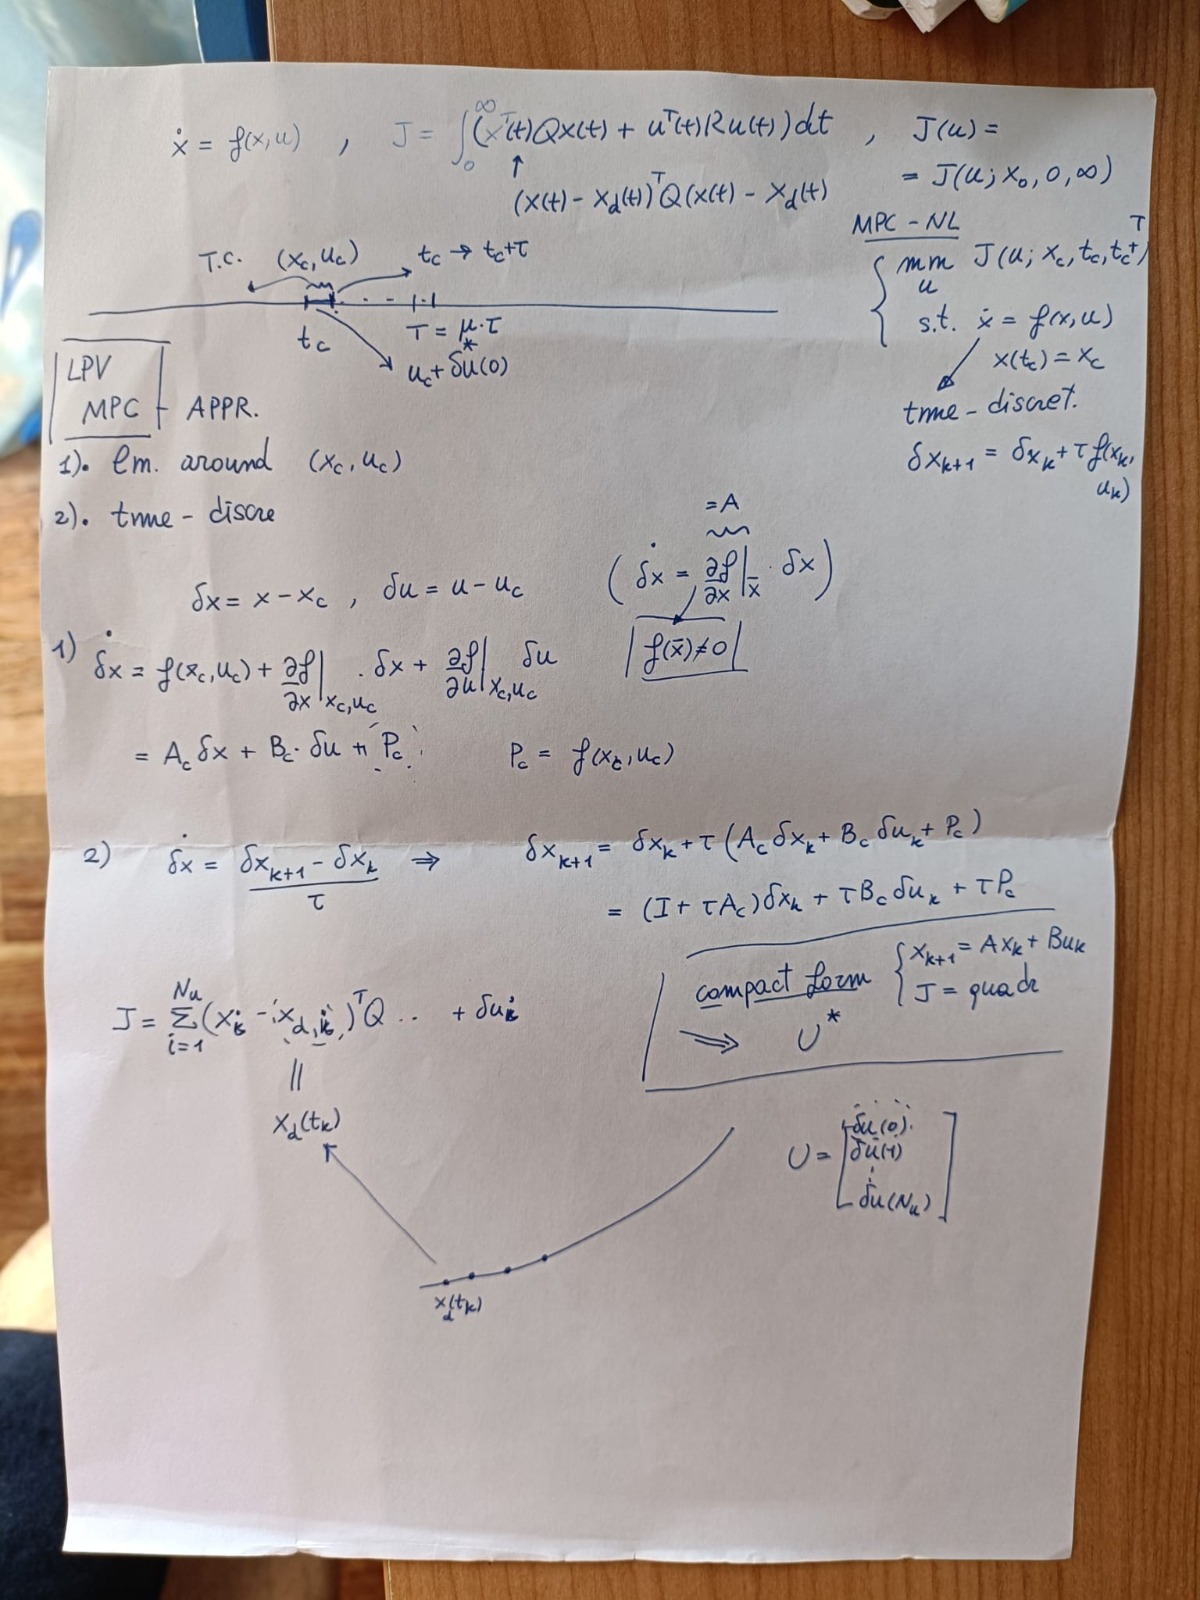 ẋ = f(x,u) , J = ∫₀^∞ (xᵀ(t)Qx(t) + uᵀ(t)Ru(t))dt , J(u) =
= J(u; x₀, 0, ∞)
↑
(x(t) - x_d(t))ᵀQ(x(t) - x_d(t)
MPC - NL
min J(u; x_c, t_c, t_c+T)
u
s.t. ẋ = f(x,u)
x(t_c) = x_c
time - discret.
δx_{k+1} = δx_k + τ f(x_k,
u_k)
T.C. (x_c, u_c) t_c → t_c+τ
t_c T = μ·τ
u_c + δu*(0)
LPV
MPC - APPR.
1). lin. around (x_c, u_c)
2). time - discre
δx = x - x_c , δu = u - u_c
=A
(δẋ = ∂f/∂x|_x̄ · δx)
f(x̄)≠0
1) δẋ = f(x_c,u_c) + ∂f/∂x|_{x_c,u_c} · δx + ∂f/∂u|_{x_c,u_c} δu
= A_c δx + B_c · δu + P_c P_c = f(x_c,u_c)
2) δẋ = (δx_{k+1} - δx_k)/τ ⇒ δx_{k+1} = δx_k + τ(A_c δx_k + B_c δu_k + P_c)
= (I + τA_c)δx_k + τB_c δu_k + τP_c
compact form { x_{k+1} = Ax_k + Bu_k
J = quadr
⇒ U*
J = Σ_{i=1}^{Nu} (x_i - x_{d,i})ᵀQ .. + δu_i
||
x_d(t_k)
U = [δu(0)
δu(1)
⋮
δu(Nu)]
x_d(t_k)